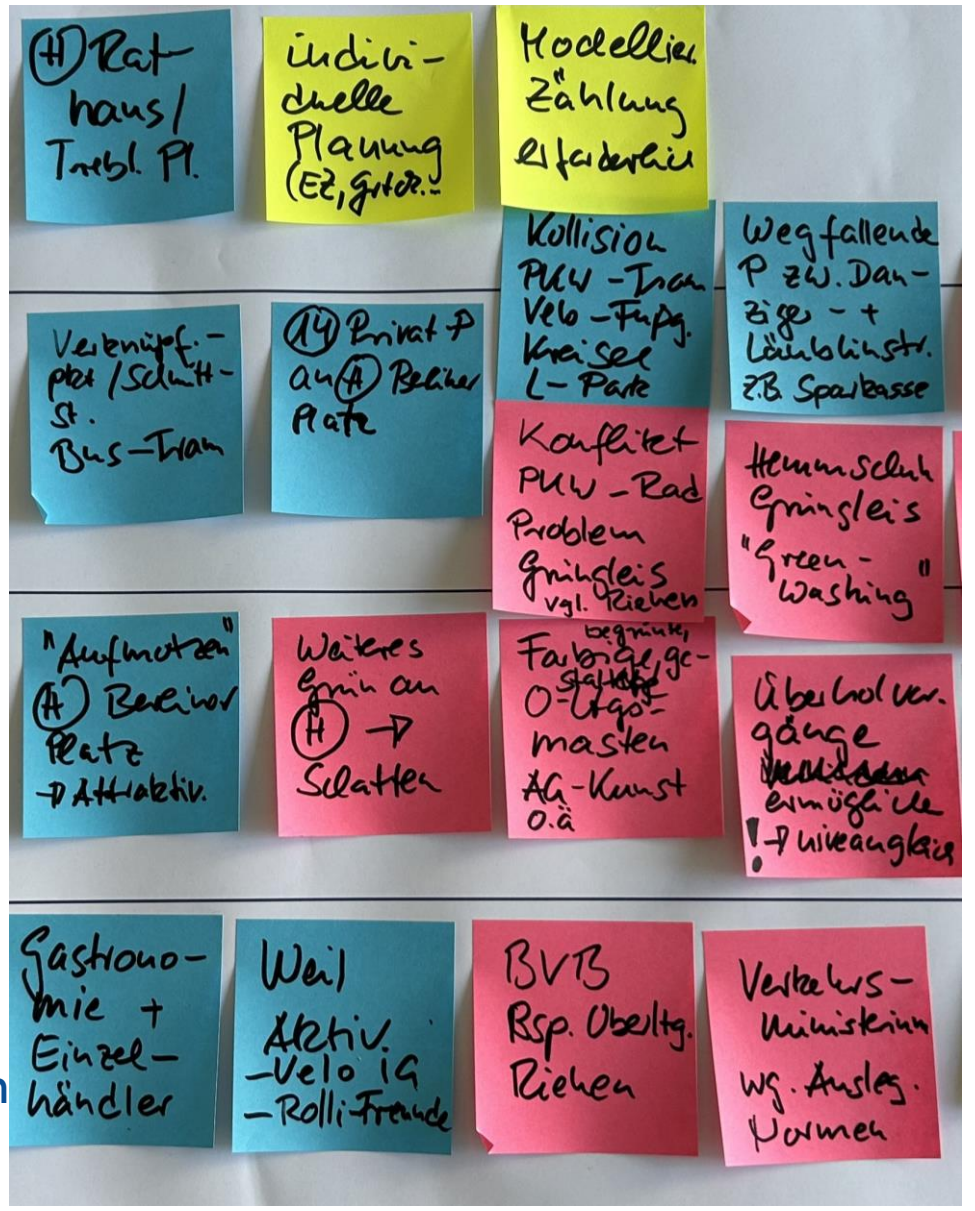 (H) Rat-
haus/
Trebl. Pl.
indivi-
duelle
Planung
(EZ, grtr..
Modellier.
Zählung
erforderlich
Kollision
PKW - Tram
Velo - Fußg.
Kreisel
L-Park
Wegfallende
P zw. Dan-
ziger - +
Läublinstr.
z.B. Sparkasse
Verknüpf.-
pkt / Schnitt-
st.
Bus-Tram
(14) Privat P
an (H) Berliner
Platz
Konflikt
PKW - Rad
Problem
Grüngleis
vgl. Riehen
Hemmschuh
Grüngleis
"Green-
Washing"
"Aufmotzen"
(H) Berliner
Platz
→ Attraktiv.
Weiteres
Grün an
(H) →
Schatten
begrünte,
Farbige, ge-
staltete
O-Ltgs-
masten
AG-Kunst
o.ä
Überholvor.
gänge
ermögliche
! → niveaugleich
Gastrono-
mie +
Einzel-
händler
Weil
Aktiv.
- Velo iG
- Rolli-Freunde
BVB
Rsp. Oberltg.
Riehen
Verkehrs-
ministerium
wg. Ausleg.
Normen
n